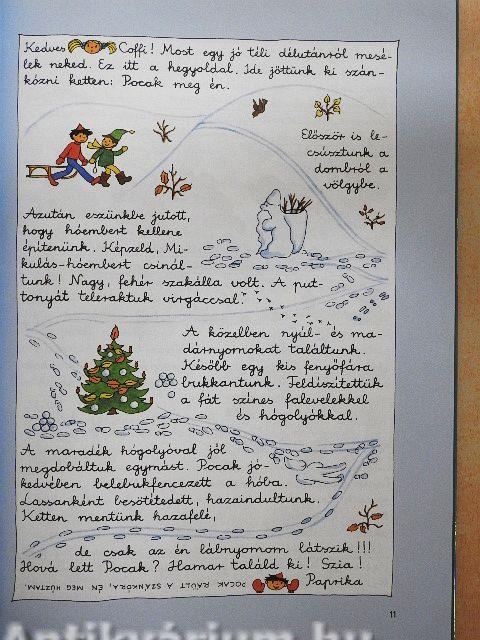 Kedves Coffi! Most egy jó téli délutánról mesé-
lek neked. Ez itt a hegyoldal. Ide jöttünk ki szán-
kózni ketten: Pocak meg én.
Először is le-
csúsztunk a
dombról a
völgybe.
Azután eszünkbe jutott,
hogy hóembert kellene
építenünk. Képzeld, Mi-
kulás-hóembert csinál-
tunk! Nagy, fehér szakálla volt. A put-
tonyát teleraktuk virgáccsal.
A közelben nyúl- és ma-
dárnyomokat találtunk.
Később egy kis fenyőfára
bukkantunk. Feldíszítettük
a fát színes falevelekkel
és hógolyókkal.
A maradék hógolyóval jól
megdobáltuk egymást. Pocak jó-
kedvében belebukfencezett a hóba.
Lassanként besötétedett, hazaindultunk.
Ketten mentünk hazafelé,
de csak az én lábnyomom látszik!!!
Hová lett Pocak? Hamar találd ki! Szia!
Paprika
POCAK RÁÜLT A SZÁNKÓRA, ÉN MEG HÚZTAM.
11
Antikvarium.hu